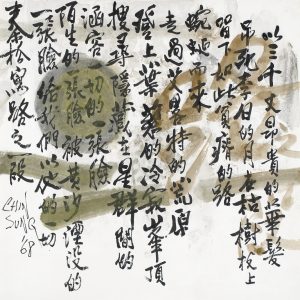 以三千丈昂貴的華髮
吊死去日的月在枯樹枝上
留下如此貧瘠的路
蜿蜒而來
走過艾略特的荒原
登上葉慈的冷寂峯頂
搜尋隱藏在星群間的
涵容一切的一張臉
陌生的一張臉被黄沙湮没的
一張臉給我們以 的一切
秦松黑路之一段
CHIN
SUNG
'68